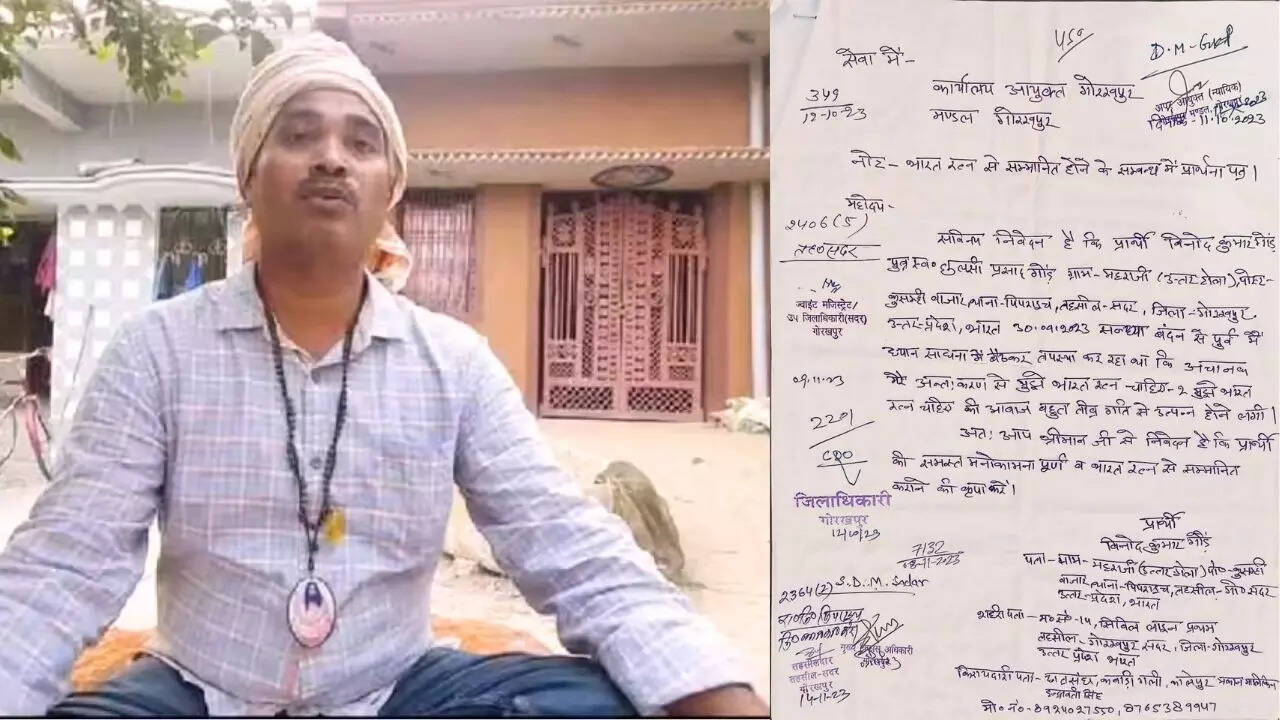 450
D.M-Gkd
सेवा में-
349
12-10-23
कार्यालय आयुक्त गोरखपुर
मण्डल गोरखपुर
अपर आयुक्त (न्यायिक)
दिनांक-11.10.2023
नोट- भारत रत्न से सम्मानित होने के सम्बन्ध में प्रार्थना पत्र।
महोदय-
2406(5)
सविनय निवेदन है कि प्रार्थी विनोद कुमार गौंड़
पुत्र स्व० तुलसी प्रसाद गौंड़ ग्राम-महराजी (उत्तर टोला), पोस्ट-
कुसम्ही बाजार, थाना-पिपराइच, तहसील-सदर, जिला-गोरखपुर
उत्तर-प्रदेश, भारत 30.09.2023 सन्ध्या बंदन से पूर्व में
ध्यान साधना में बैठकर तपस्या कर रहा था कि अचानक
मेरे अन्तःकरण से मुझे भारत रत्न चाहिए-2 मुझे भारत
रत्न चाहिए की आवाज बहुत तीव्र गति से उत्पन्न होने लगी।
अतः आप श्रीमान जी से निवेदन है कि प्रार्थी
की समस्त मनोकामना पूर्ण व भारत रत्न से सम्मानित
कराने की कृपा करें।
ज्वाइंट मजिस्ट्रेट/
उप जिलाधिकारी(सदर)
गोरखपुर
2201
CRO
जिलाधिकारी
गोरखपुर
7132
08-11-2023
2364(2) S.D.M. Sadar
तहसीलदार
तहसील-सदर
गोरखपुर
14-11-23
मुख्य राजस्व अधिकारी
गोरखपुर
प्रार्थी
विनोद कुमार गौंड़
पता- ग्राम-महराजी (उत्तर टोला) पो० कुसम्ही
बाजार, थाना-पिपराइच, तहसील-गो० सदर
उत्तर-प्रदेश, भारत
शहरी पता- म०सं०-14, सिविल लाइन प्रथम
तहसील- गोरखपुर सदर, जिला-गोरखपुर
उत्तर प्रदेश भारत
किरायदारी पता-
मो० नं०-8924027550, 8765389947